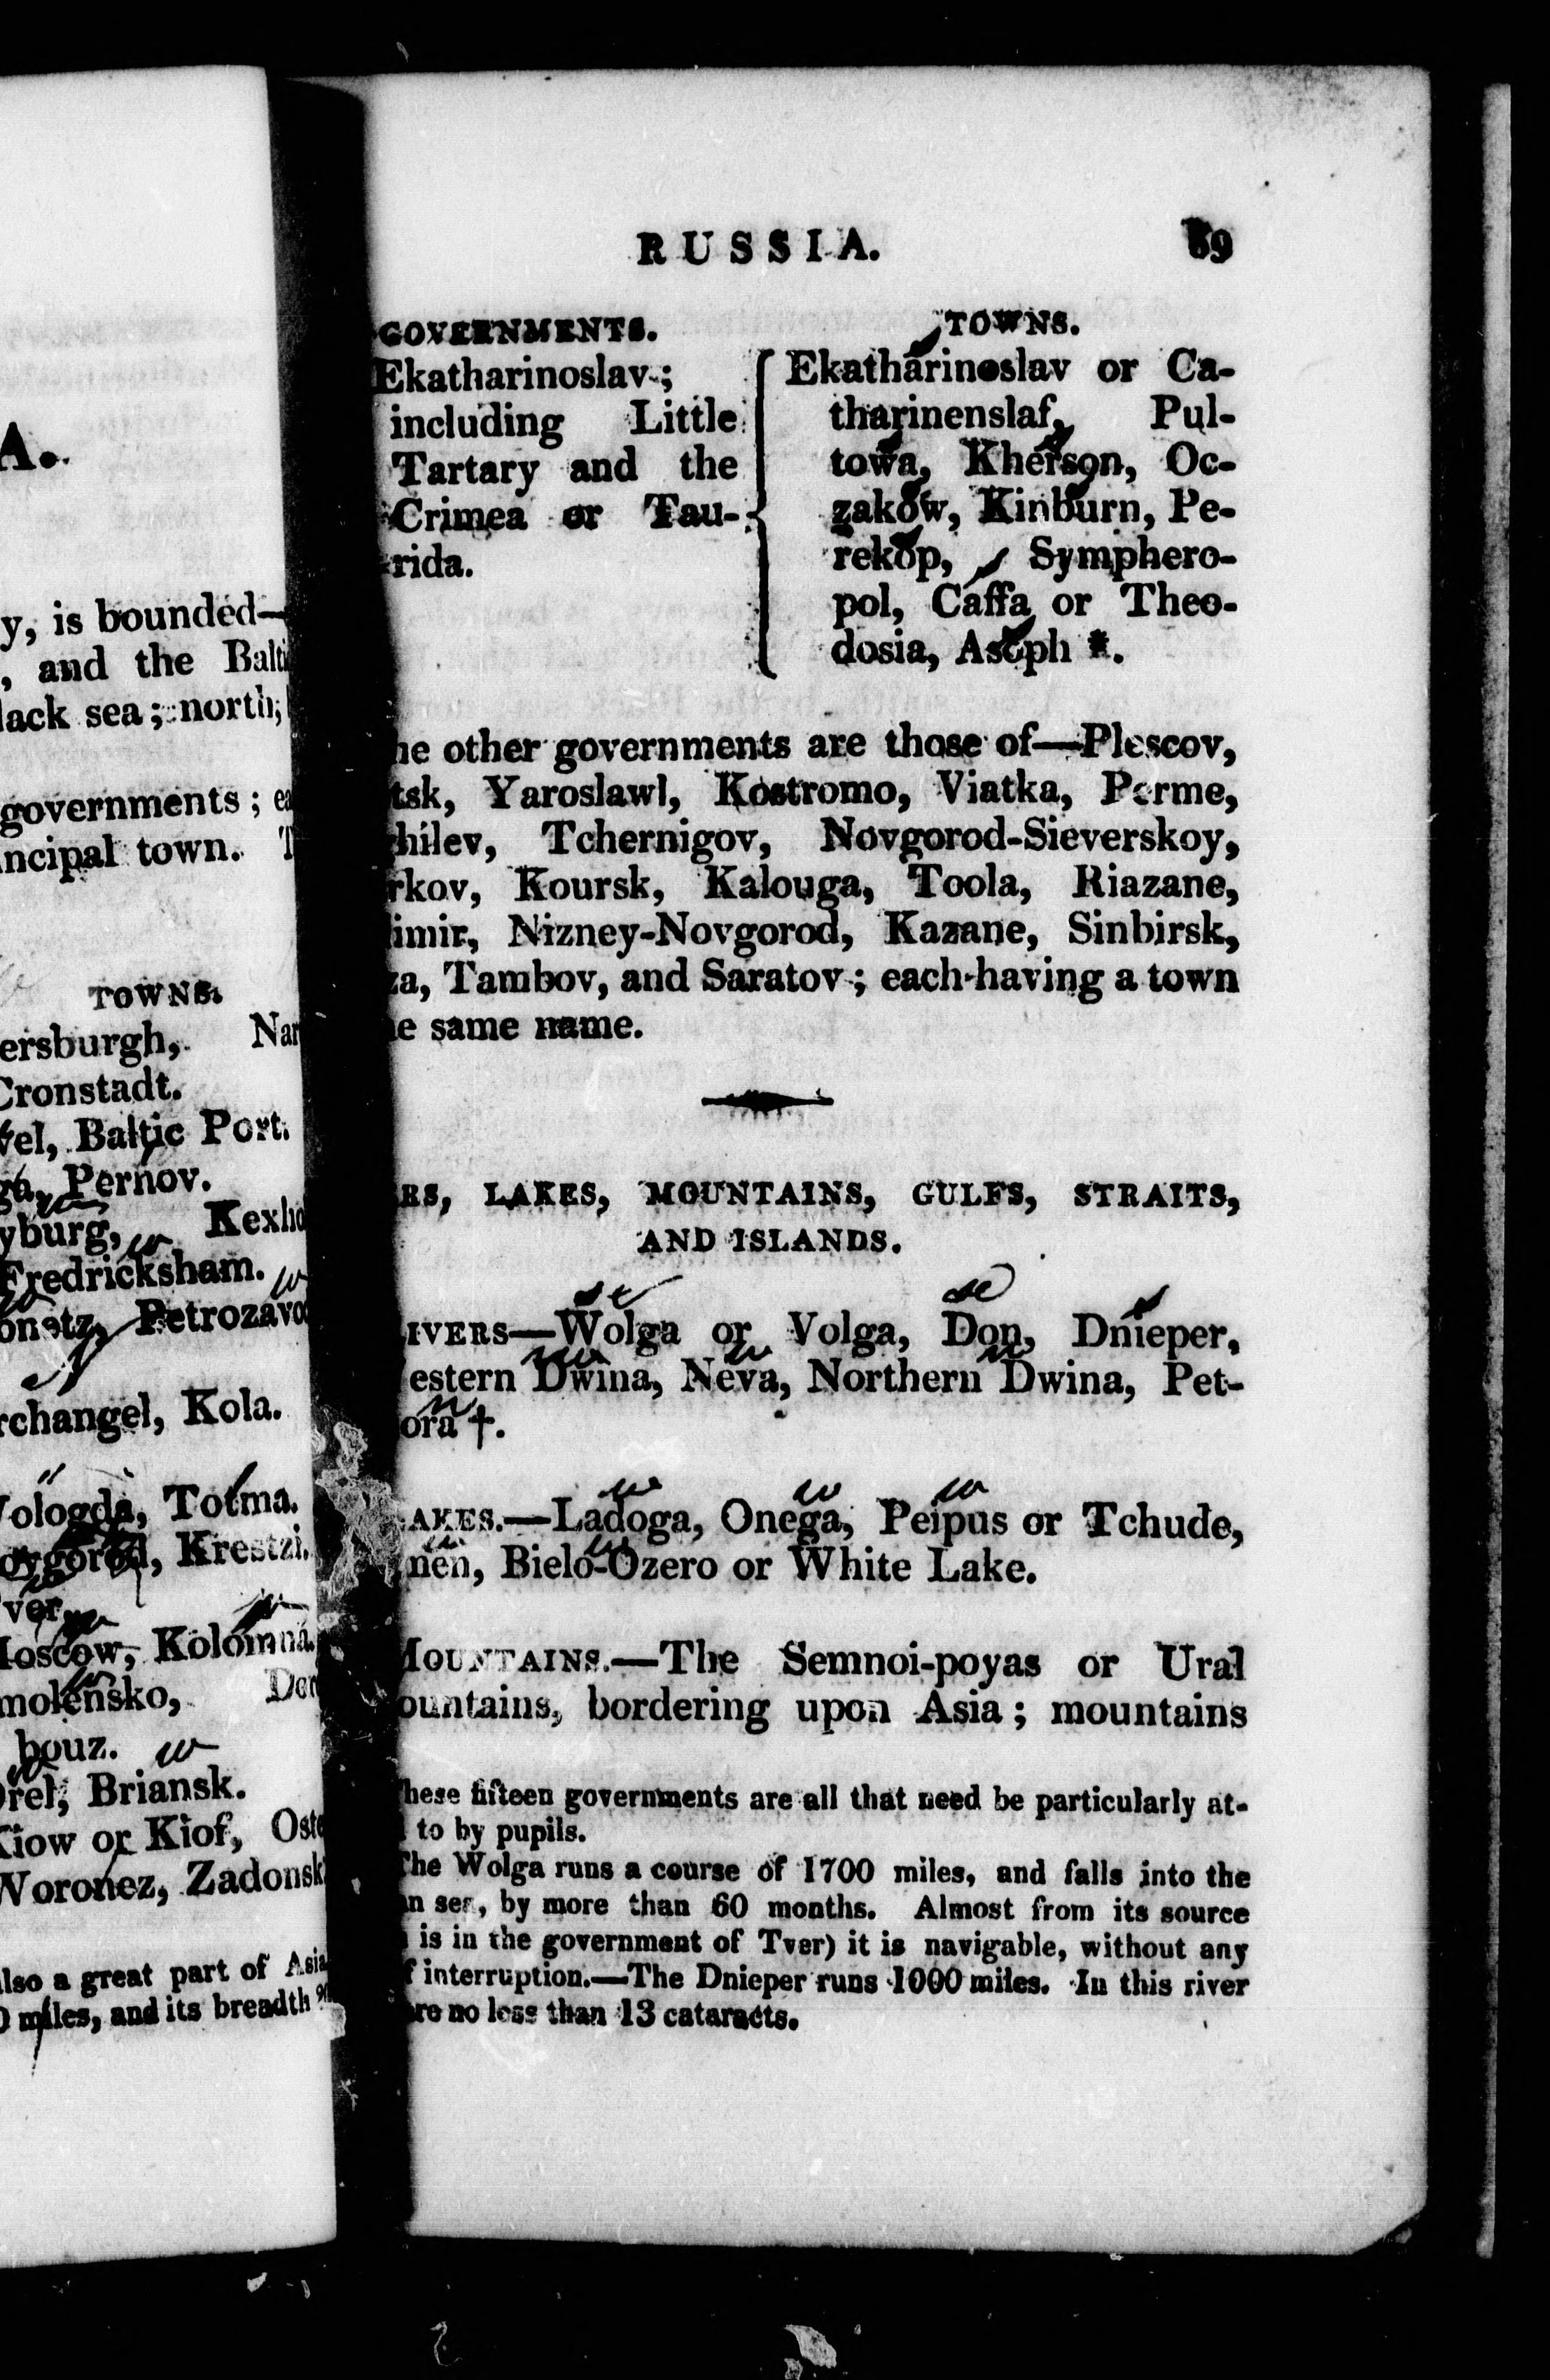 A.
y, is bounded—
, and the Balti
lack sea; north;
governments; ea
ncipal town. T
TOWNS.
ersburgh, Nar
Cronstadt.
vel, Baltic Port.
ga, Pernov.
yburg, Kexho
Fredricksham.
onetz, Petrozavo
rchangel, Kola.
Vologda, Totma.
ovgorod, Krestzi.
ver.
Moscow, Kolomna.
molensko, Dor
bouz.
Orel, Briansk.
Kiow or Kiof, Oste
Woronez, Zadonsk
also a great part of Asia
0 miles, and its breadth
RUSSIA. 59
GOVERNMENTS. TOWNS.
Ekatharinoslav; Ekatharinoslav or Ca-
including Little tharinenslaf, Pul-
Tartary and the towa, Kherson, Oc-
Crimea or Tau- zakow, Kinburn, Pe-
rida. rekop, Symphero-
pol, Caffa or Theo-
dosia, Asoph *.
he other governments are those of—Plescov,
tsk, Yaroslawl, Kostromo, Viatka, Perme,
hilev, Tchernigov, Novgorod-Sieverskoy,
rkov, Koursk, Kalouga, Toola, Riazane,
imir, Nizney-Novgorod, Kazane, Sinbirsk,
za, Tambov, and Saratov; each having a town
e same name.
RS, LAKES, MOUNTAINS, GULFS, STRAITS,
AND ISLANDS.
IVERS—Wolga or Volga, Don, Dnieper,
estern Dwina, Neva, Northern Dwina, Pet-
ora †.
AKES.—Ladoga, Onega, Peipus or Tchude,
nen, Bielo-Ozero or White Lake.
MOUNTAINS.—The Semnoi-poyas or Ural
ountains, bordering upon Asia; mountains
These fifteen governments are all that need be particularly at-
to by pupils.
The Wolga runs a course of 1700 miles, and falls into the
n sea, by more than 60 months. Almost from its source
is in the government of Tver) it is navigable, without any
f interruption.—The Dnieper runs 1000 miles. In this river
re no less than 13 cataracts.